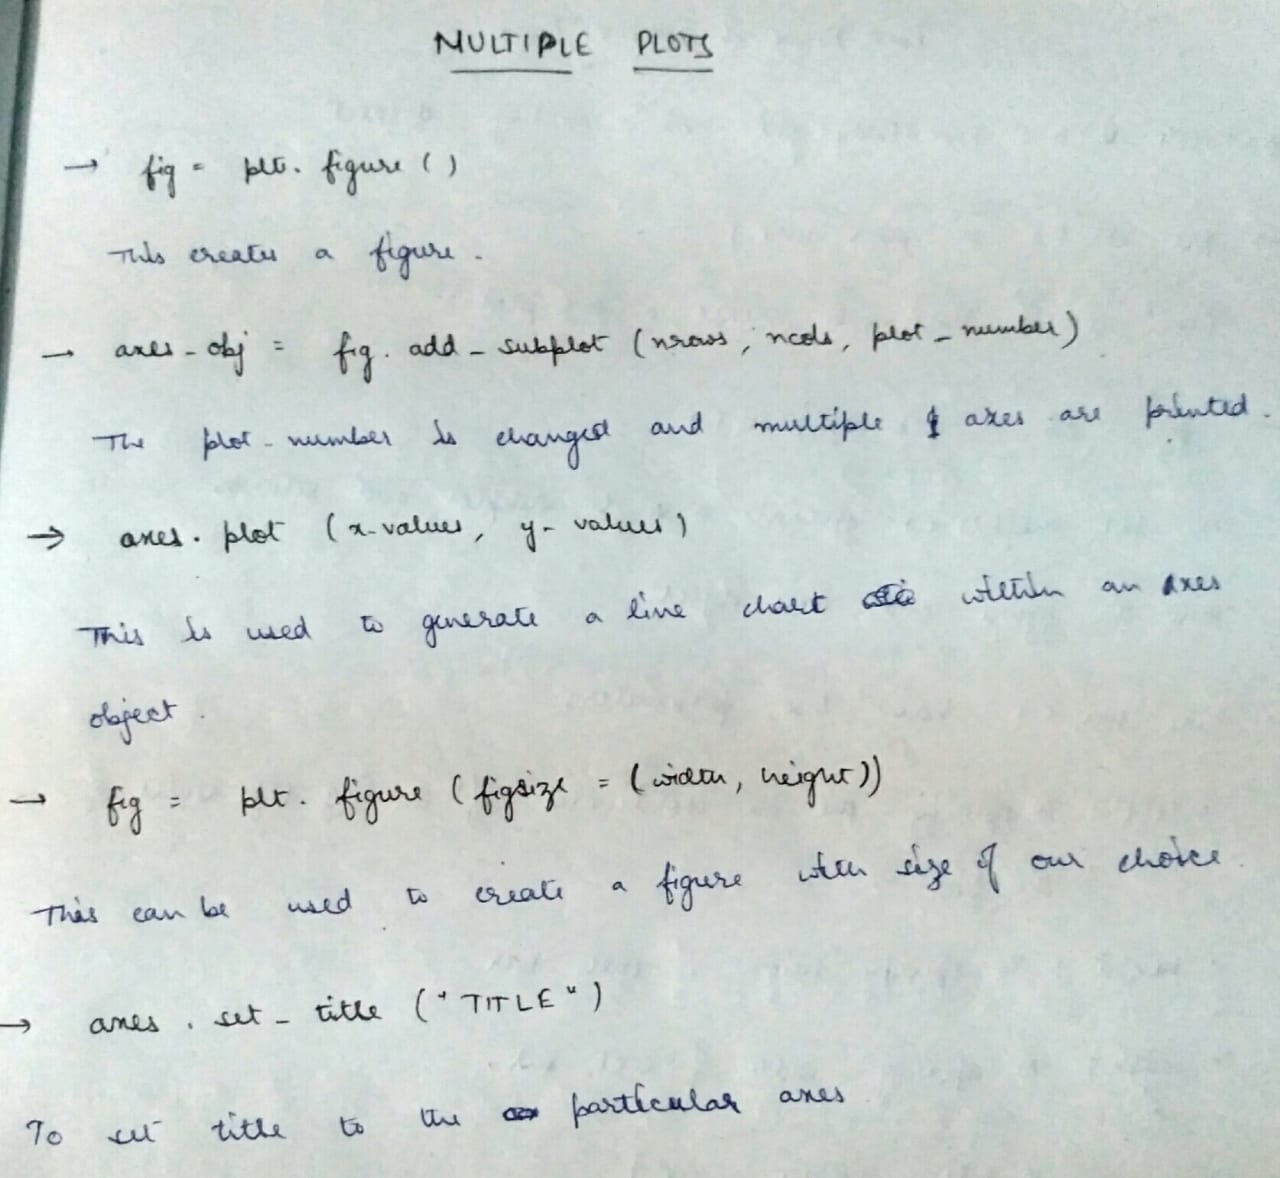 MULTIPLE PLOTS
→ fig = plt. figure ( )
This creates a figure.
→ axes_obj = fig. add_subplot (nrows, ncols, plot_number)
The plot-number is changed and multiple axes are printed.
→ axes. plot (x-values, y-values)
This is used to generate a line chart within an axes
object.
→ fig = plt. figure (figsize = (width, height))
This can be used to create a figure with size of our choice
→ axes. set_title ("TITLE")
To set title to the particular axes